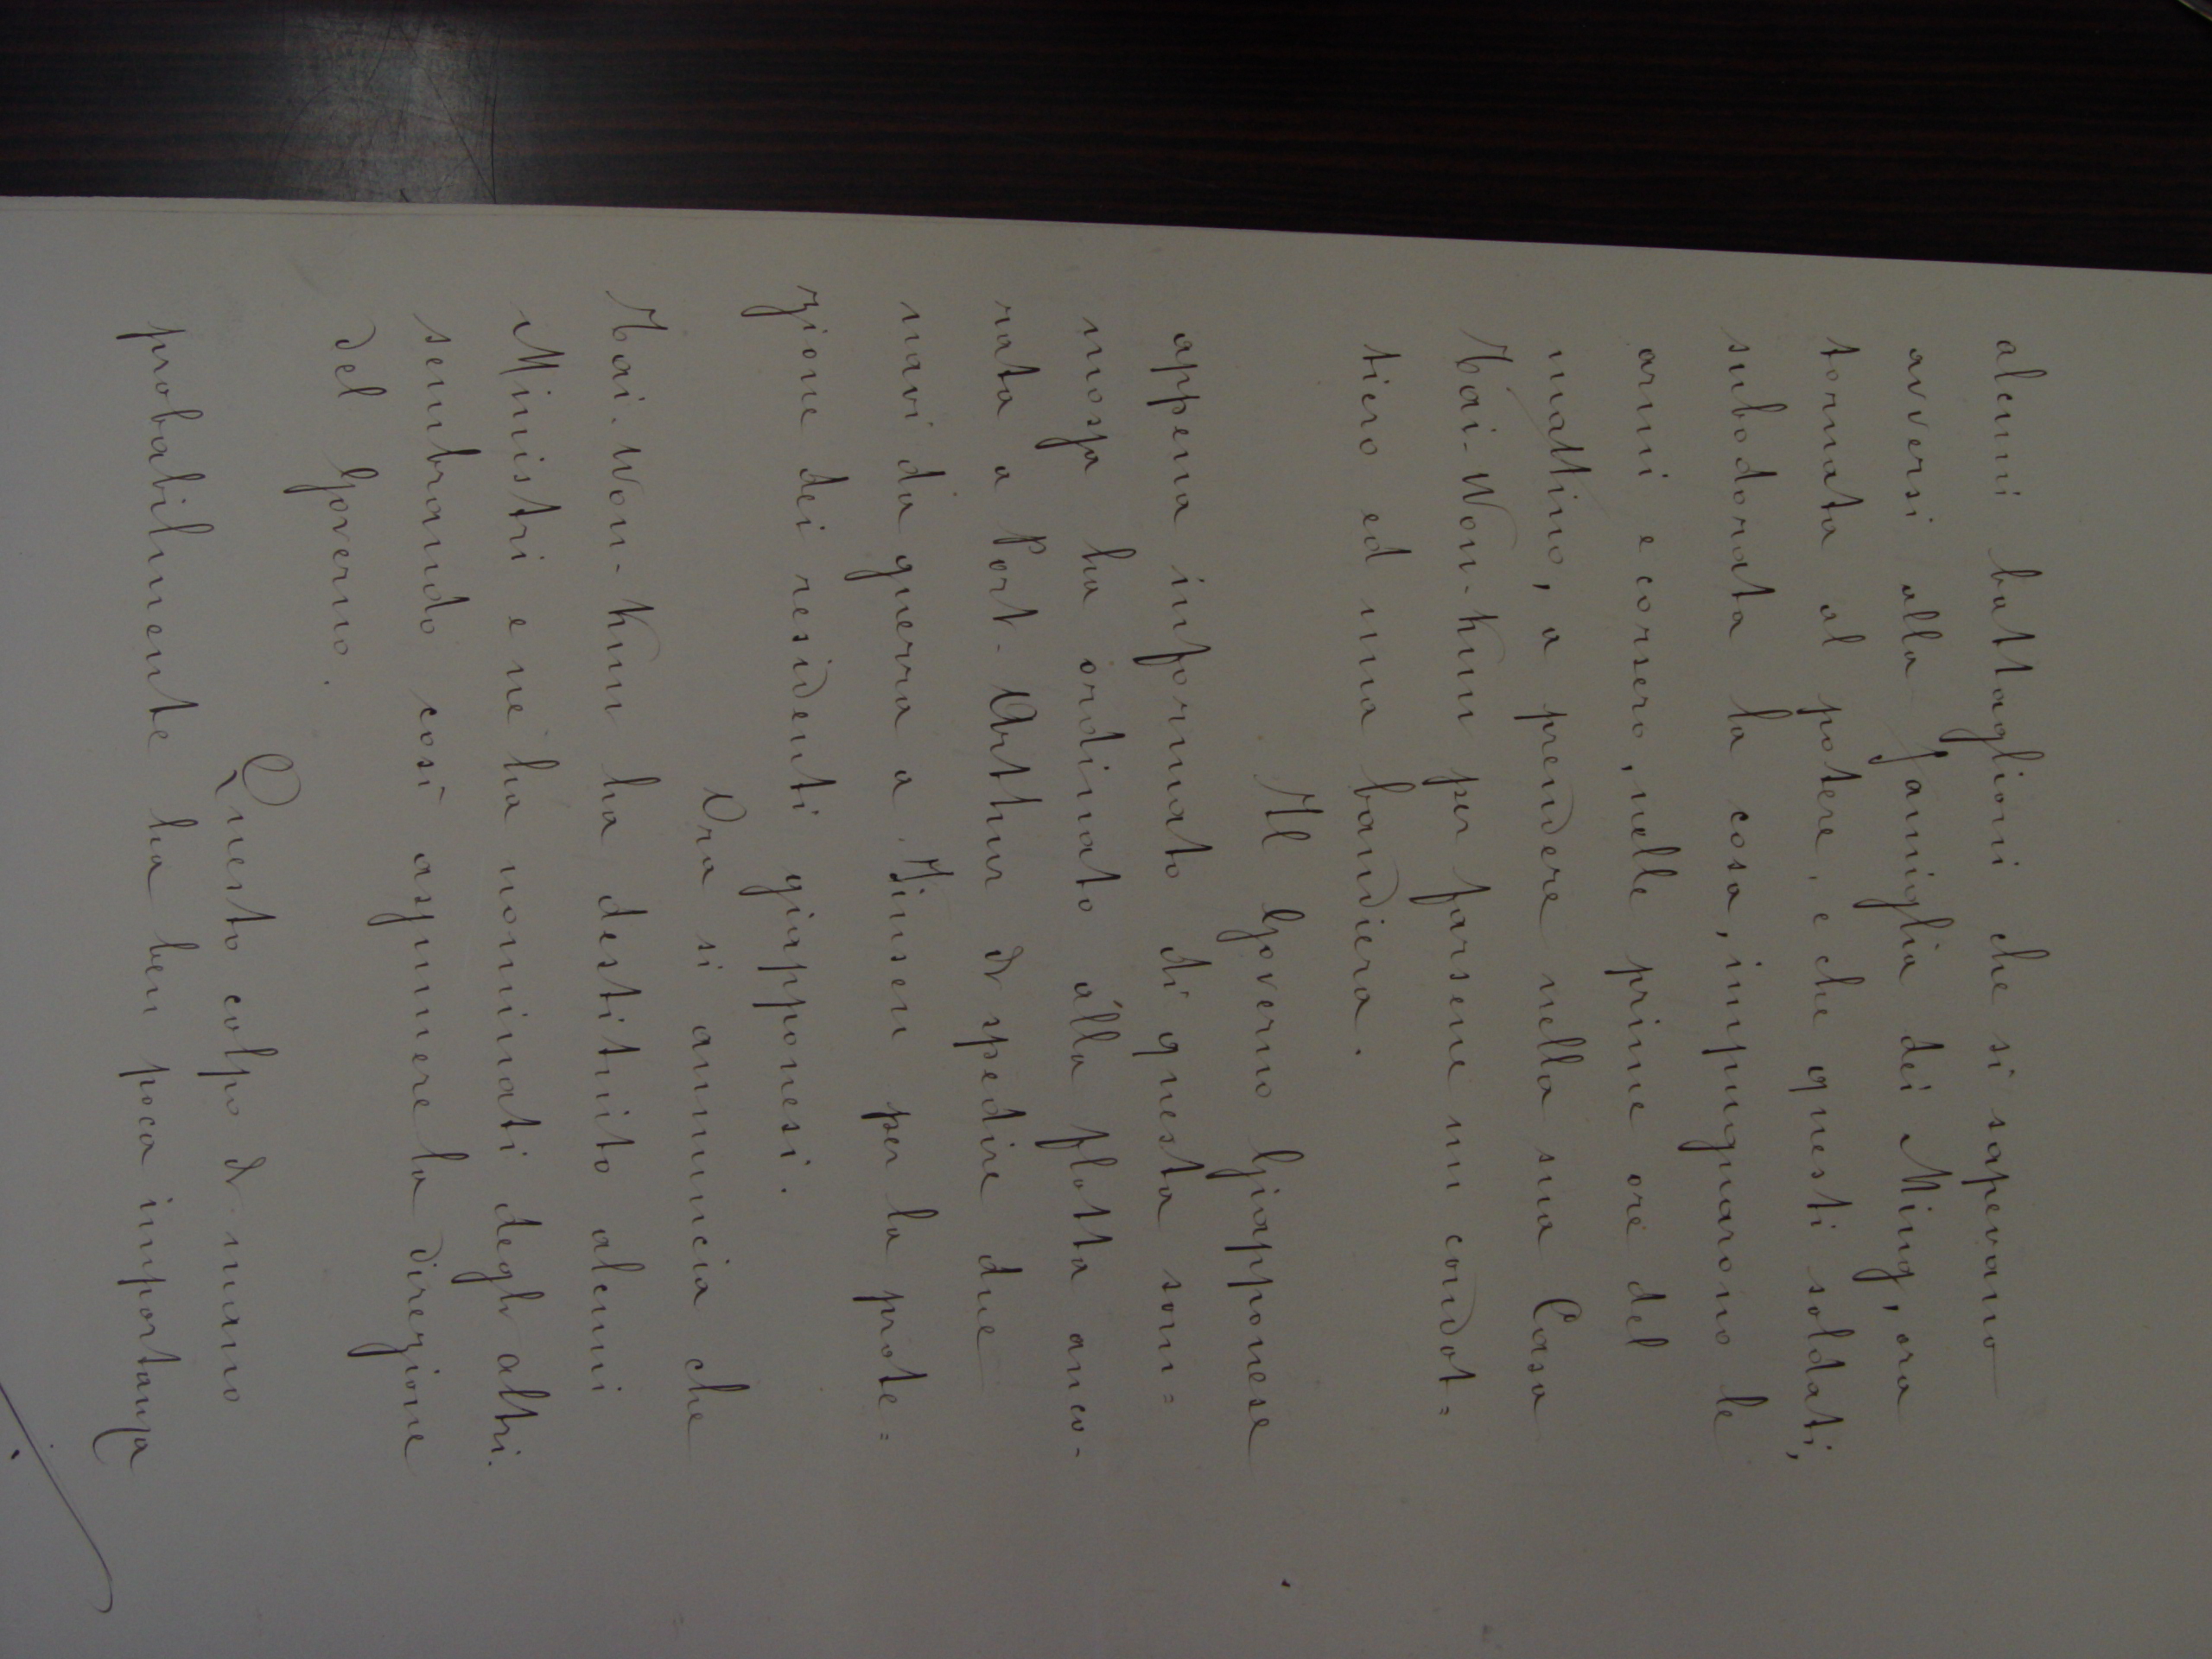 alcuni battaglioni che si sapevano
avversi alla famiglia dei Ming, ora
tornata al potere, e che questi soldati,
subodorata la cosa, impugnarono le
armi e corsero, nelle prime ore del
mattino, a prendere nella sua Casa
Tai-Won-Kun per farsene un condot=
tiero ed una bandiera.
Il Governo Giapponese
appena informato di questa som=
mossa ha ordinato alla flotta anco-
rata a Port-Arthur di spedire due
navi da guerra a Jinsen per la prote=
zione dei residenti giapponesi.
Ora si annuncia che
Tai-Won-Kun ha destituito alcuni
Ministri e ne ha nominati degli altri.
sembrando così assumere la direzione
del Governo.
Questo colpo di mano
probabilmente ha ben poca importanza